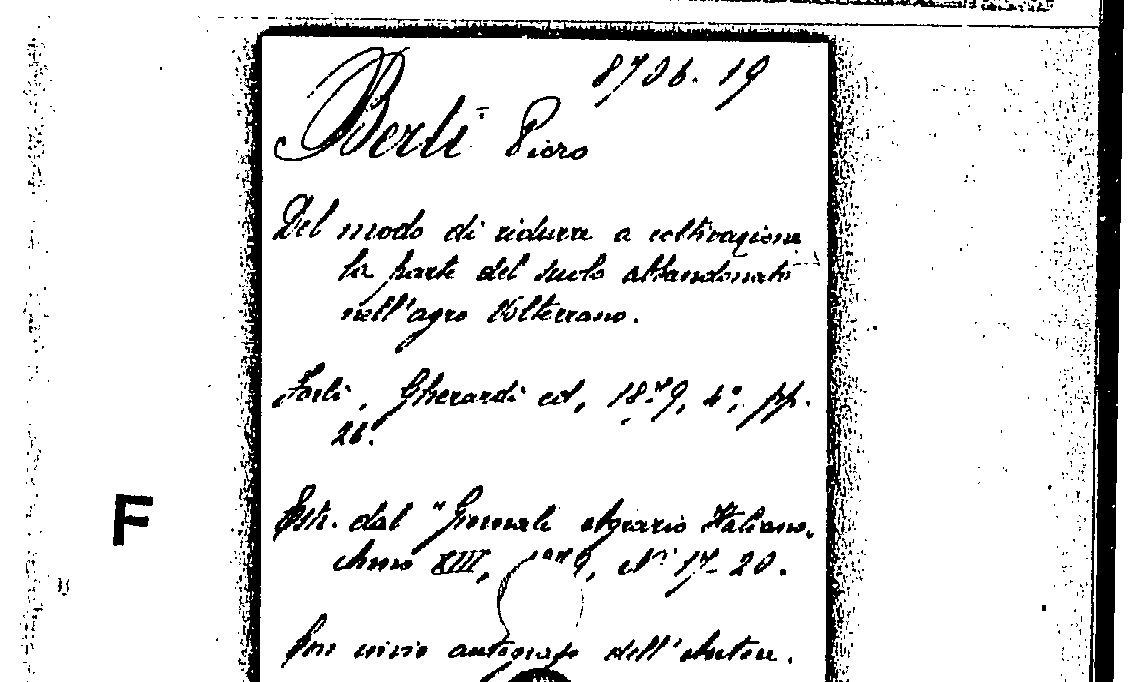 8706. 19
Berti Piero
Del modo di ridurre a coltivazione
la parte del suolo abbandonato
nell'agro Volterrano.
Forlì, Gherardi ed, 1879, 4°, pp.
26.
F
Estr. dal "Giornale Agrario Italiano,
Anno XIII, 1879, Ni 17-20.
Con invio autografo dell'Autore.